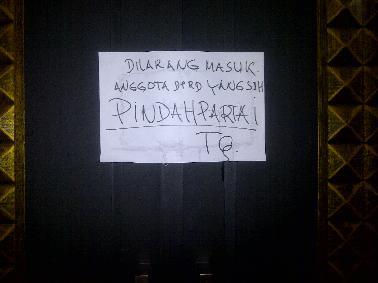 DILARANG MASUK.
ANGGOTA DPRD YANG SDH
PINDAH PARTAI
TQ.